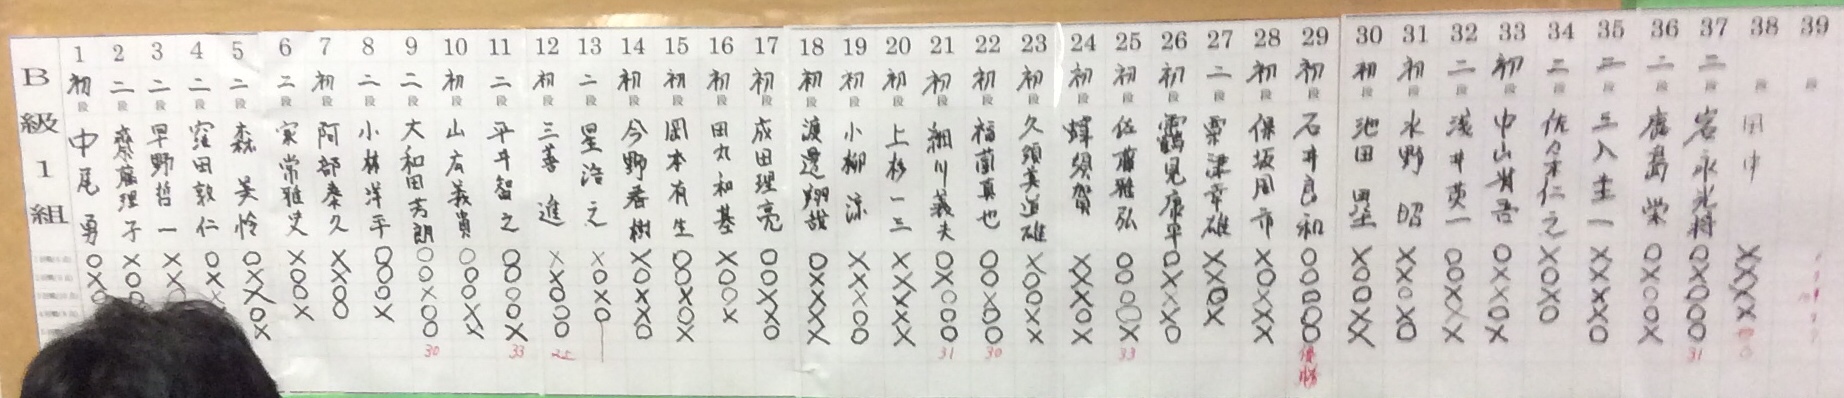 B級1組
1 初段 中尾 勇
2 二段 齋藤理子
3 二段 早野哲一
4 二段 窪田敦仁
5 二段 森 美怜
6 二段 家常雅史
7 初段 阿部泰久
8 二段 小林洋平
9 二段 大和田芳朗
10 初段 山広義貴
11 二段 平井智之
12 初段 三善 進
13 二段 星 浩之
14 初段 今野春樹
15 初段 岡本有生
16 初段 田丸和基
17 初段 成田理亮
18 初段 渡邊翔哉
19 初段 小柳 涼
20 初段 上杉一三
21 初段 細川義夫
22 初段 福薗真也
23 初段 久須美道雄
24 初段 蜂須賀
25 初段 佐藤雅弘
26 初段 鶴見康平
27 二段 粟津幸雄
28 初段 保坂周市
29 初段 石井良和
30 初段 池田 塁
31 初段 水野 昭
32 二段 浅井英一
33 初段 中山貴吾
34 二段 佐々木仁之
35 二段 三入圭一
36 二段 鹿島 栄
37 二段 岩永光将
38 段 田中
39 段
30
33
31
30
33
優勝
31